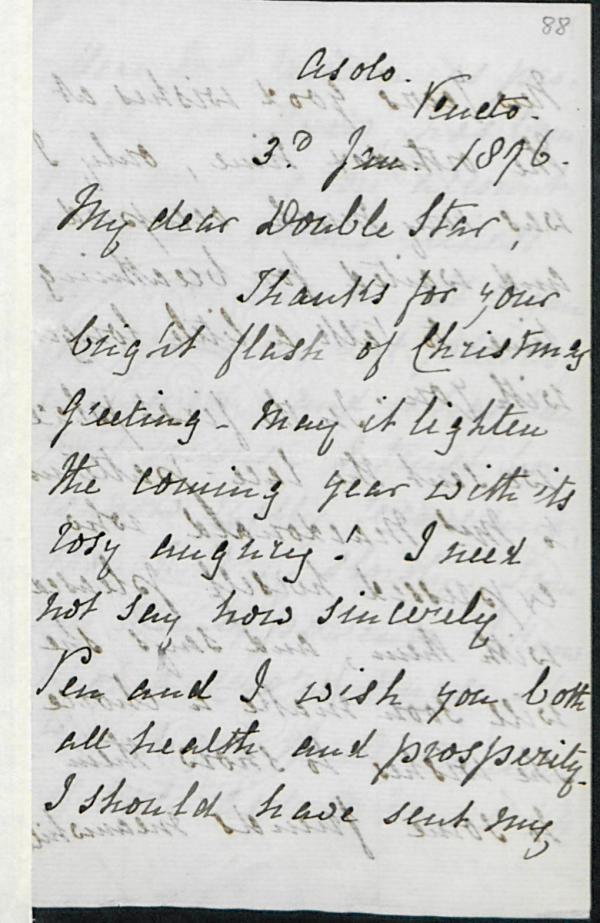 88
Asolo.
Veneto.
3.D Jan. 1896.
My dear Double Star,
Thanks for your
bright flash of Christmas
Greeting - May it lighten
the coming year with its
rosy augury! I need
not say how sincerely
Pen and I wish you both
all health and prosperity.
I should have sent my